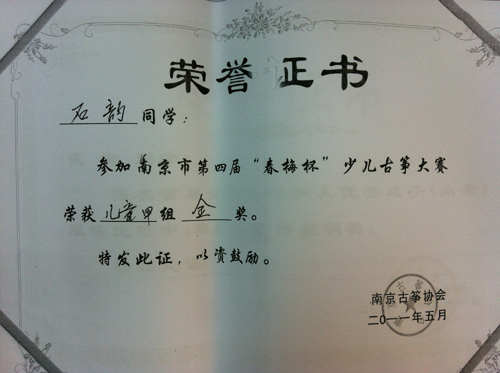 荣誉证书
石韵同学：
参加南京市第四届“春梅杯”少儿古筝大赛
荣获儿童甲组金奖。
特发此证，以资鼓励。
南京古筝协会
二〇一一年五月